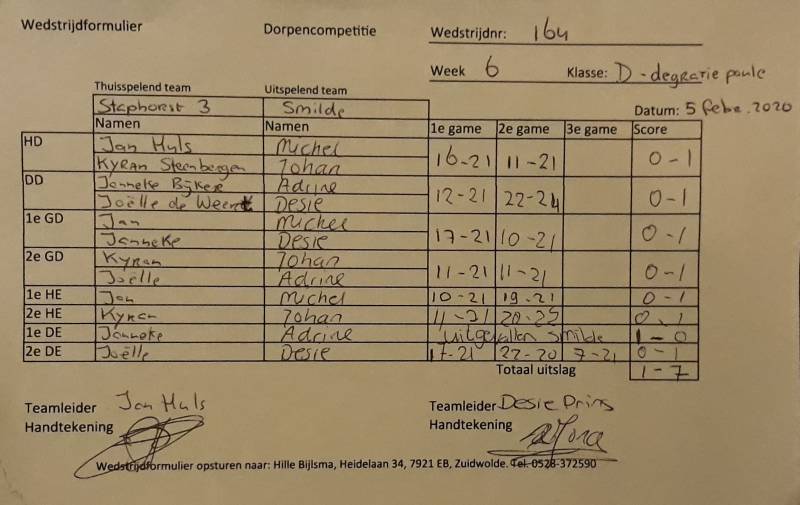 Wedstrijdformulier Dorpencompetitie Wedstrijdnr: 164
Week 6 Klasse: D - degratie poule
Thuisspelend team Uitspelend team
Staphorst 3 Smilde Datum: 5 febr. 2020
Namen Namen 1e game 2e game 3e game Score
HD Jan Huls Michel 16-21 11-21 0-1
Kyran Steenbergen Johan
DD Janneke Bijker Adrine 12-21 22-24 0-1
Joëlle de Weerdt Desie
1e GD Jan Michel 17-21 10-21 0-1
Janneke Desie
2e GD Kyran Johan 11-21 11-21 0-1
Joëlle Adrine
1e HE Jan Michel 10-21 19-21 0-1
2e HE Kyran Johan 11-21 20-22 0-1
1e DE Janneke Adrine uitgevallen Smilde 1-0
2e DE Joëlle Desie 17-21 22-20 7-21 0-1
Totaal uitslag 1-7
Teamleider Jan Huls Teamleider Desie Prins
Handtekening Handtekening
Wedstrijdformulier opsturen naar: Hille Bijlsma, Heidelaan 34, 7921 EB, Zuidwolde. Tel. 0528-372590